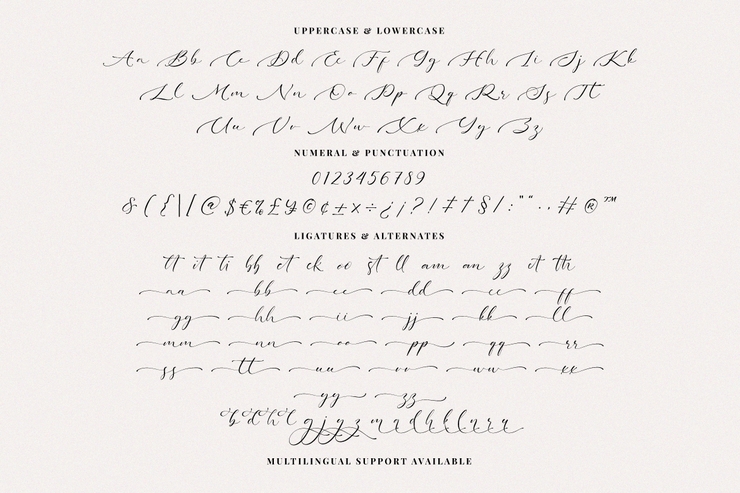 UPPERCASE & LOWERCASE
Aa Bb Cc Dd Ee Ff Gg Hh Ii Jj Kk
Ll Mm Nn Oo Pp Qq Rr Ss Tt
Uu Vv Ww Xx Yy Zz
NUMERAL & PUNCTUATION
0123456789
& ( { | \ [ @ $ € % £ ¥ © ¢ ± × ÷ ¿ ¡ ? ! ‡ † § / : " “ . . # ® ™
LIGATURES & ALTERNATES
tt it ti bb et ck oo st ll am an zz ot th
aa bb cc dd ee ff
gg hh ii jj kk ll
mm nn oo pp qq rr
ss tt uu vv ww xx
yy zz
b d h l g j y z m a d h k l n r x
MULTILINGUAL SUPPORT AVAILABLE